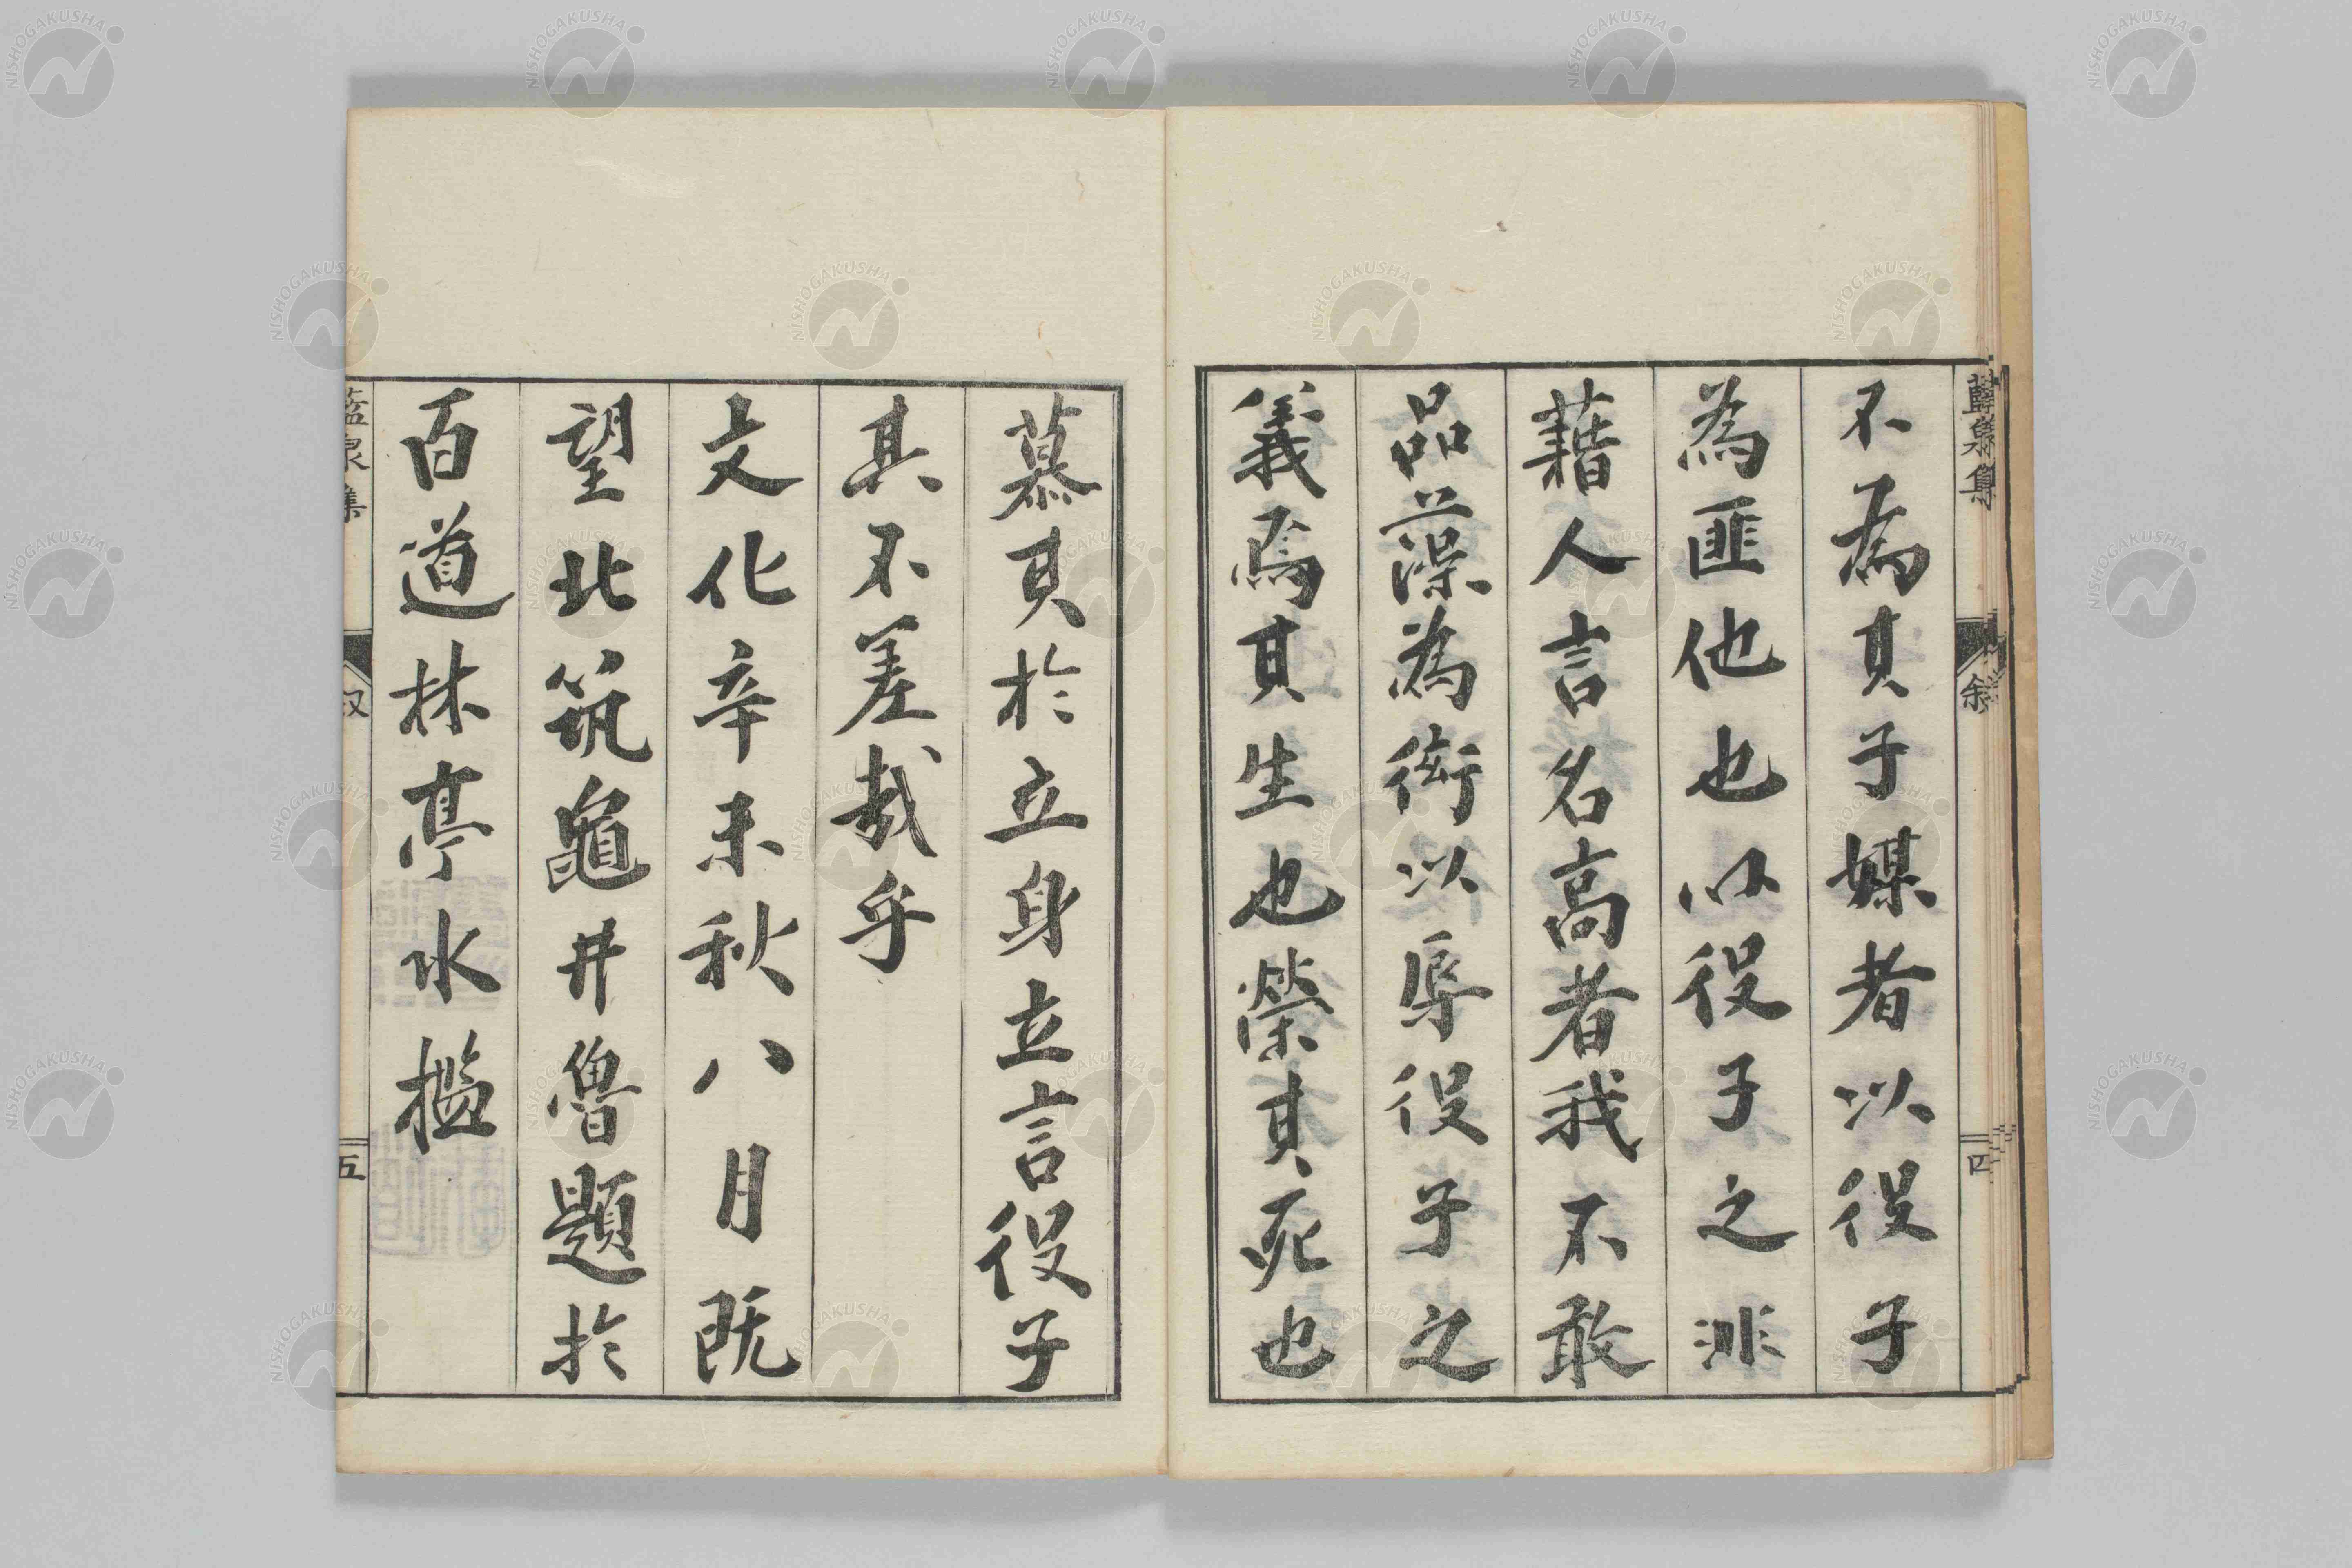 藍泉集 叙 四
不為其子媒者以役子
為匪他也以役子之非
藉人言名高者我不敢
品藻為衒以辱役子之
義焉其生也榮其死也
慕其於立身立言役子
其不差哉乎
文化辛未秋八月既
望北筑龜井魯題於
百道林亭水檻
藍泉集 叙 五
NISHOGAKUSHA